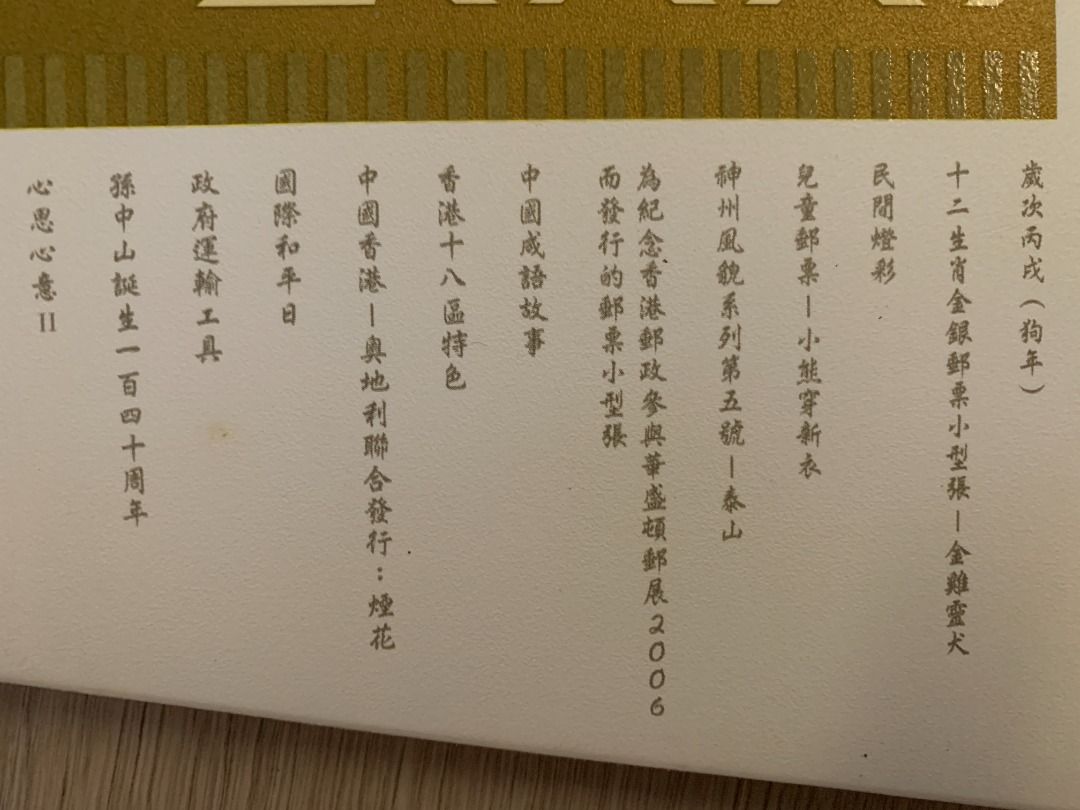 歲次丙戌(狗年)
十二生肖金銀郵票小型張—金雞靈犬
民間燈彩
兒童郵票—小熊穿新衣
神州風貌系列第五號—泰山
為紀念香港郵政參與華盛頓郵展2006
而發行的郵票小型張
中國成語故事
香港十八區特色
中國香港—奧地利聯合發行：煙花
國際和平日
政府運輸工具
孫中山誕生一百四十周年
心思心意II